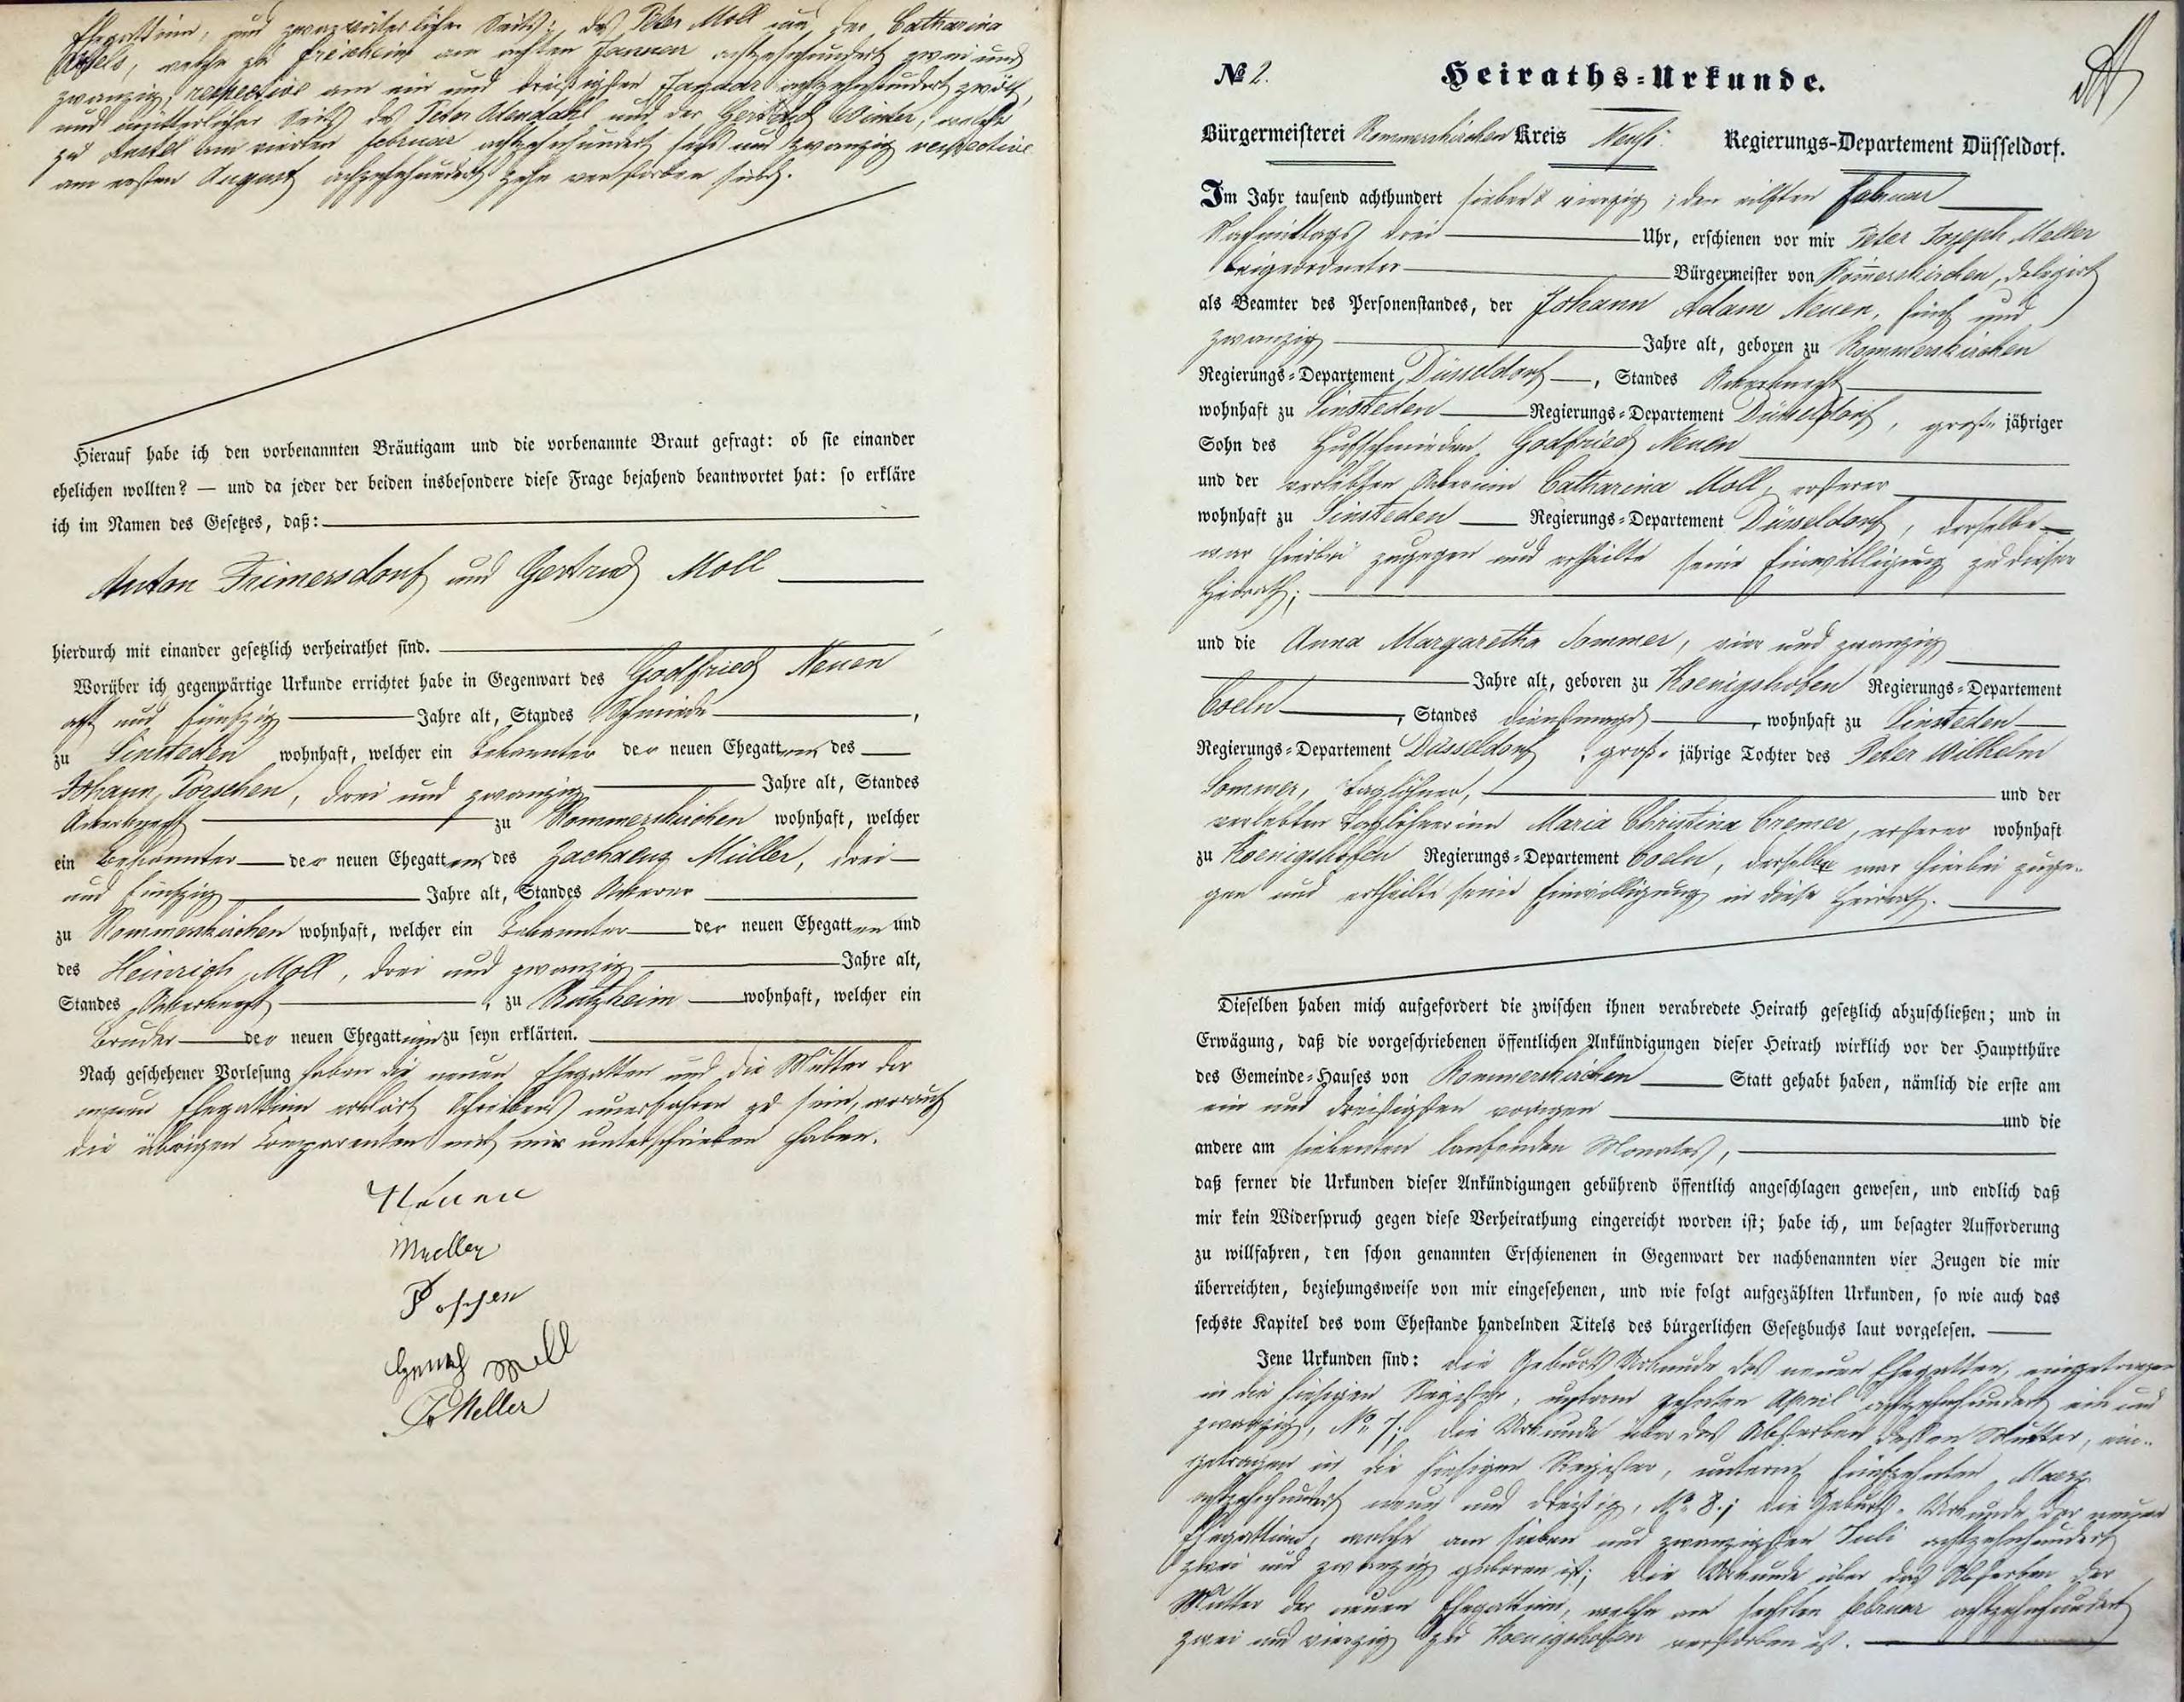 Ehegattinn, und zwar väterlicher Seits, des Peter Moll und der Catharina
welche zu Frixheim am achten Januar achtzehnhundert zwei und
zwanzig, respective am ein und dreißigsten Januar achtzehnhundert zwölf,
und mütterlicher Seits des Peter und der Gertrud Winter, welche
zu am vierten Februar achtzehnhundert sechs und zwanzig respective
am ersten August achtzehnhundert zehn verstorben sind.
Hierauf habe ich den vorbenannten Bräutigam und die vorbenannte Braut gefragt: ob sie einander
ehelichen wollten? — und da jeder der beiden insbesondere diese Frage bejahend beantwortet hat: so erkläre
ich im Namen des Gesetzes, daß:
Anton Frimersdorf und Gertrud Moll
hierdurch mit einander gesetzlich verheirathet sind.
Worüber ich gegenwärtige Urkunde errichtet habe in Gegenwart des Godfried Neuen
acht und fünfzig Jahre alt, Standes Schmiede,
zu Sinsteden wohnhaft, welcher ein Bekannter der neuen Ehegatten des
Johann Porschen, drei und zwanzig Jahre alt, Standes
Ackerknecht zu Rommerskirchen wohnhaft, welcher
ein Bekannter der neuen Ehegatten des Zachaeus Müller, drei
und fünfzig Jahre alt, Standes Ackerer
zu Rommerskirchen wohnhaft, welcher ein Bekannter der neuen Ehegatten und
des Heinrich Moll, drei und zwanzig Jahre alt,
Standes Ackerknecht, zu Butzheim wohnhaft, welcher ein
Bruder der neuen Ehegattinn zu seyn erklärten.
Nach geschehener Vorlesung haben die neuen Ehegatten und die Mutter der
neuen Ehegattinn erklärt Schreibens unerfahren zu sein, worauf
die übrigen Comparenten mit mir unterschrieben haben.
Neuen
Mueller
Porschen
Henrich Moll
Meller
№ 2. Heiraths-Urkunde.
Bürgermeisterei Rommerskirchen Kreis Neuss Regierungs-Departement Düsseldorf.
Im Jahr tausend achthundert sieben & vierzig, den eilften Februar
Nachmittags drei Uhr, erschienen vor mir Peter Joseph Meller
Beigeordneter Bürgermeister von Rommerskirchen, delegirt
als Beamter des Personenstandes, der Johann Adam Neuen, fünf und
zwanzig Jahre alt, geboren zu Rommerskirchen
Regierungs-Departement Düsseldorf, Standes Ackerknecht
wohnhaft zu Sinsteden Regierungs-Departement Düsseldorf, groß-jähriger
Sohn des Hufschmieden Godfried Neuen
und der verlebten Ackerinn Catharina Moll, ersterer
wohnhaft zu Sinsteden Regierungs-Departement Düsseldorf, derselbe
war hierbei zugegen und ertheilte seine Einwilligung zu dieser
Heirath;
und die Anna Margaretha Sommer, vier und zwanzig
Jahre alt, geboren zu Koenigshoven Regierungs-Departement
Coeln, Standes Dienstmagd, wohnhaft zu Sinsteden
Regierungs-Departement Düsseldorf, groß-jährige Tochter des Peter Wilhelm
Sommer, Taglöhner, und der
verlebten Taglöhnerinn Maria Christina Cremer, ersterer wohnhaft
zu Koenigshofen Regierungs-Departement Coeln, derselbe war hierbei zuge-
gen und ertheilte seine Einwilligung in diese Heirath.
Dieselben haben mich aufgefordert die zwischen ihnen verabredete Heirath gesetzlich abzuschließen; und in
Erwägung, daß die vorgeschriebenen öffentlichen Ankündigungen dieser Heirath wirklich vor der Hauptthüre
des Gemeinde-Hauses von Rommerskirchen Statt gehabt haben, nämlich die erste am
ein und dreißigsten vorigen und die
andere am siebenten laufenden Monates,
daß ferner die Urkunden dieser Ankündigungen gebührend öffentlich angeschlagen gewesen, und endlich daß
mir kein Widerspruch gegen diese Verheirathung eingereicht worden ist; habe ich, um besagter Aufforderung
zu willfahren, den schon genannten Erschienenen in Gegenwart der nachbenannten vier Zeugen die mir
überreichten, beziehungsweise von mir eingesehenen, und wie folgt aufgezählten Urkunden, so wie auch das
sechste Kapitel des vom Ehestande handelnden Titels des bürgerlichen Gesetzbuchs laut vorgelesen.
Jene Urkunden sind: die Geburts Urkunde des neuen Ehegatten, eingetragen
in die hiesigen Register, unterm zehnten April achtzehnhundert ein und
zwanzig, No 7; die Urkunde über das Absterben dessen Mutter, ein-
getragen in die hiesigen Register, unterm fünfzehnten Maerz
achtzehnhundert neun und dreißig, No 8.; die Geburts-Urkunde der neuen
Ehegattinn, welche am sieben und zwanzigsten Juli achtzehnhundert
zwei und zwanzig geboren ist; die Urkunde über das Absterben der
Mutter der neuen Ehegattinn, welche am sechsten Februar achtzehnhundert
zwei und vierzig zu Koenigshofen verstorben ist.